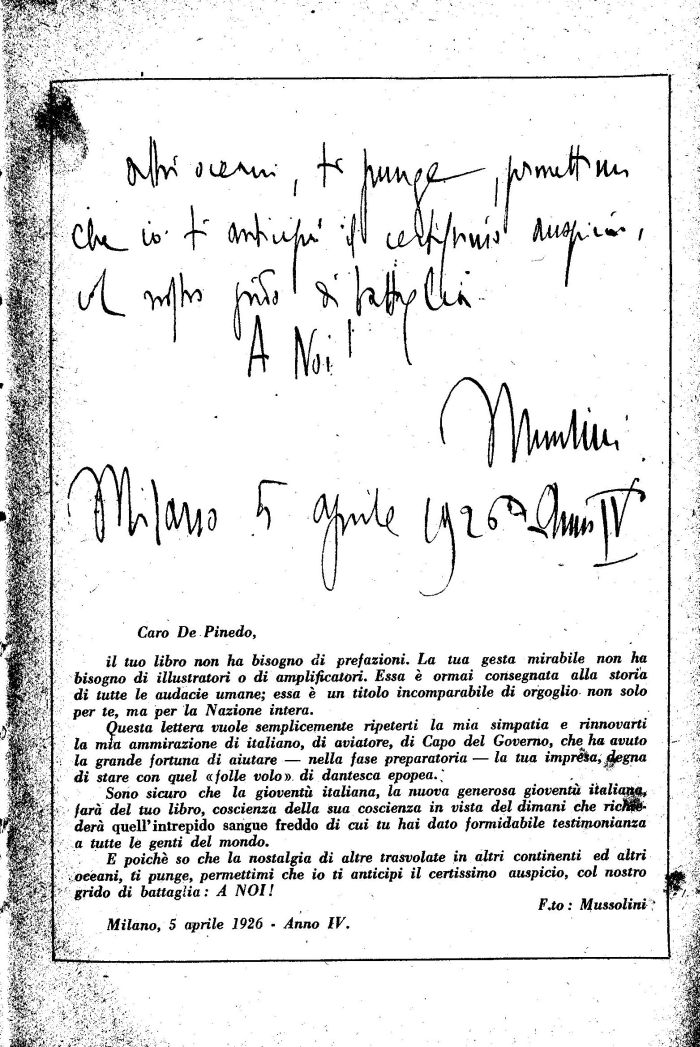 altri oceani, ti punge, permettimi
che io ti anticipi il certissimo auspicio,
col nostro grido di battaglia
A Noi!
Mussolini
Milano 5 aprile 1926 Anno IV
Caro De Pinedo,
il tuo libro non ha bisogno di prefazioni. La tua gesta mirabile non ha
bisogno di illustratori o di amplificatori. Essa è ormai consegnata alla storia
di tutte le audacie umane; essa è un titolo incomparabile di orgoglio non solo
per te, ma per la Nazione intera.
Questa lettera vuole semplicemente ripeterti la mia simpatia e rinnovarti
la mia ammirazione di italiano, di aviatore, di Capo del Governo, che ha avuto
la grande fortuna di aiutare — nella fase preparatoria — la tua impresa, degna
di stare con quel «folle volo» di dantesca epopea.
Sono sicuro che la gioventù italiana, la nuova generosa gioventù italiana,
farà del tuo libro, coscienza della sua coscienza in vista del dimani che richie-
derà quell'intrepido sangue freddo di cui tu hai dato formidabile testimonianza
a tutte le genti del mondo.
E poichè so che la nostalgia di altre trasvolate in altri continenti ed altri
oceani, ti punge, permettimi che io ti anticipi il certissimo auspicio, col nostro
grido di battaglia: A NOI!
F.to: Mussolini
Milano, 5 aprile 1926 - Anno IV.